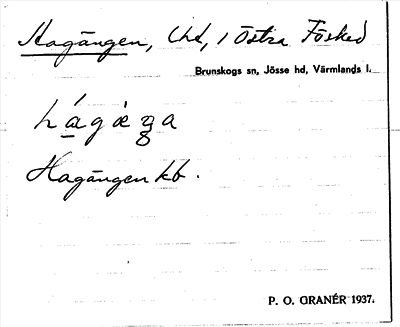 Hagängen, lht, i Östra Fösked
Brunskogs sn, Jösse hd, Värmlands l.
Hagängen kb.
P. O. GRANÉR 1937.